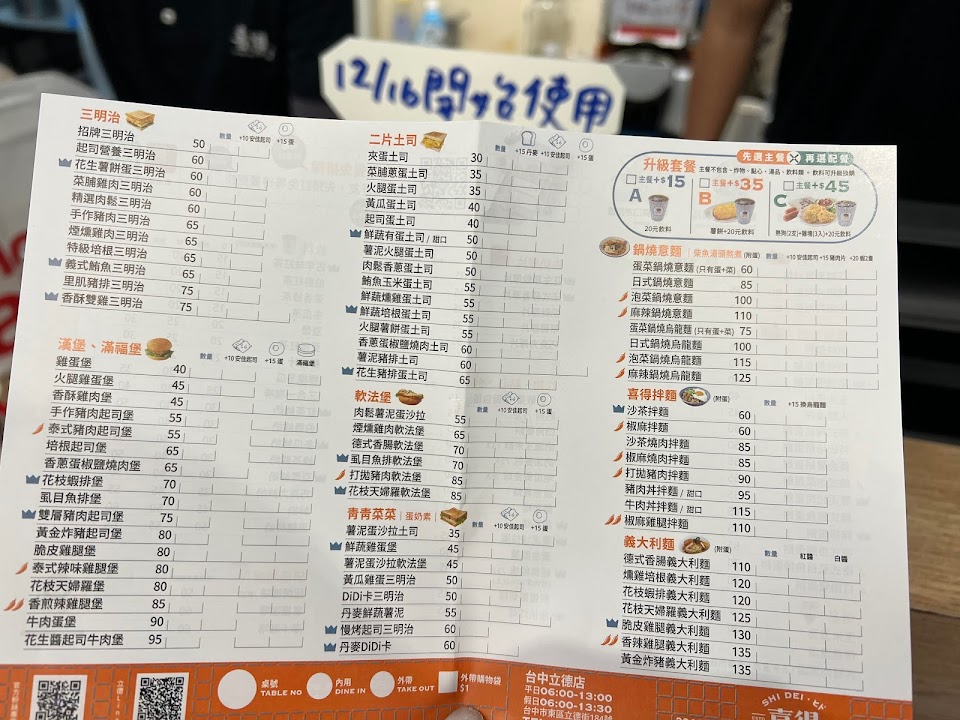 12/16開始使用
三明治
數量 +10 安佳起司 +15 蛋
招牌三明治 50
起司營養三明治 60
花生薯餅蛋三明治 60
菜脯雞肉三明治 60
精選肉鬆三明治 60
手作豬肉三明治 60
煙燻雞肉三明治 65
特級培根三明治 65
義式鮪魚三明治 65
里肌豬排三明治 75
香酥雙雞三明治 75
漢堡、滿福堡
數量 +10 安佳起司 +15 蛋 滿福堡
雞蛋堡 40
火腿雞蛋堡 45
香酥雞肉堡 45
手作豬肉起司堡 55
泰式豬肉起司堡 55
培根起司堡 65
香蔥蛋椒鹽燒肉堡 65
花枝蝦排堡 70
虱目魚排堡 70
雙層豬肉起司堡 75
黃金炸豬起司堡 80
脆皮雞腿堡 80
泰式辣味雞腿堡 80
花枝天婦羅堡 80
香煎辣雞腿堡 85
牛肉蛋堡 90
花生醬起司牛肉堡 95
二片土司
數量 +15 丹麥 +10 安佳起司 +15 蛋
夾蛋土司 30
菜脯蔥蛋土司 35
火腿蛋土司 35
黃瓜蛋土司 40
起司蛋土司 40
鮮蔬有蛋土司 / 甜口 50
薯泥火腿蛋土司 50
肉鬆香蔥蛋土司 50
鮪魚玉米蛋土司 50
鮮蔬燻雞蛋土司 50
鮮蔬培根蛋土司 50
火腿薯餅蛋土司 50
香蔥蛋椒鹽燒肉土司 60
薯泥豬排土司 60
花生豬排蛋土司 65
軟法堡
數量 +10 安佳起司 +15 蛋
肉鬆薯泥蛋沙拉 55
煙燻雞肉軟法堡 65
德式香腸軟法堡 70
虱目魚排軟法堡 70
打拋豬肉軟法堡 85
花枝天婦羅軟法堡 85
青青菜菜 | 蛋奶素
數量 +10 安佳起司 +15 蛋
薯泥蛋沙拉土司 35
鮮蔬雞蛋堡 45
薯泥蛋沙拉軟法堡 45
黃瓜雞蛋三明治 50
DiDi卡三明治 50
丹麥鮮蔬薯泥 55
慢烤起司三明治 60
丹麥DiDi卡 60
先選主餐 X 再選配餐
升級套餐 主餐不包含、炸物、點心、湯品、飲料類。飲料可升級換購
主餐+$15 主餐+$35 主餐+$45
A B C
20元飲料 薯餅+20元飲料 熱狗(2支)+雞塊(3入)+20元飲料
鍋燒意麵 | 柴魚湯頭熬煮 (附蛋) 數量 +10 安佳起司 +15 豬肉片 +20 蝦2隻
蛋菜鍋燒意麵 (只有蛋+菜) 60
日式鍋燒意麵 85
泡菜鍋燒意麵 100
麻辣鍋燒意麵 110
蛋菜鍋燒烏龍麵 (只有蛋+菜) 75
日式鍋燒烏龍麵 100
泡菜鍋燒烏龍麵 115
麻辣鍋燒烏龍麵 125
喜得拌麵 (附蛋) 數量 +15 換烏龍麵
沙茶拌麵 60
椒麻拌麵 60
沙茶燒肉拌麵 85
椒麻燒肉拌麵 85
打拋豬肉拌麵 90
豬肉丼拌麵 / 甜口 95
牛肉丼拌麵 / 甜口 115
椒麻雞腿拌麵 110
義大利麵 (附蛋) 數量 紅醬 白醬
德式香腸義大利麵 110
燻雞培根義大利麵 120
花枝蝦排義大利麵 120
花枝天婦羅義大利麵 125
脆皮雞腿義大利麵 130
香辣雞腿義大利麵 135
黃金炸豬義大利麵 135
桌號 TABLE NO
內用 DINE IN
外帶 TAKE OUT
外帶購物袋 $1
台中立德店
平日06:00-13:00
假日06:00-13:30
台中市東區立德街184號
SHI DEI
喜得